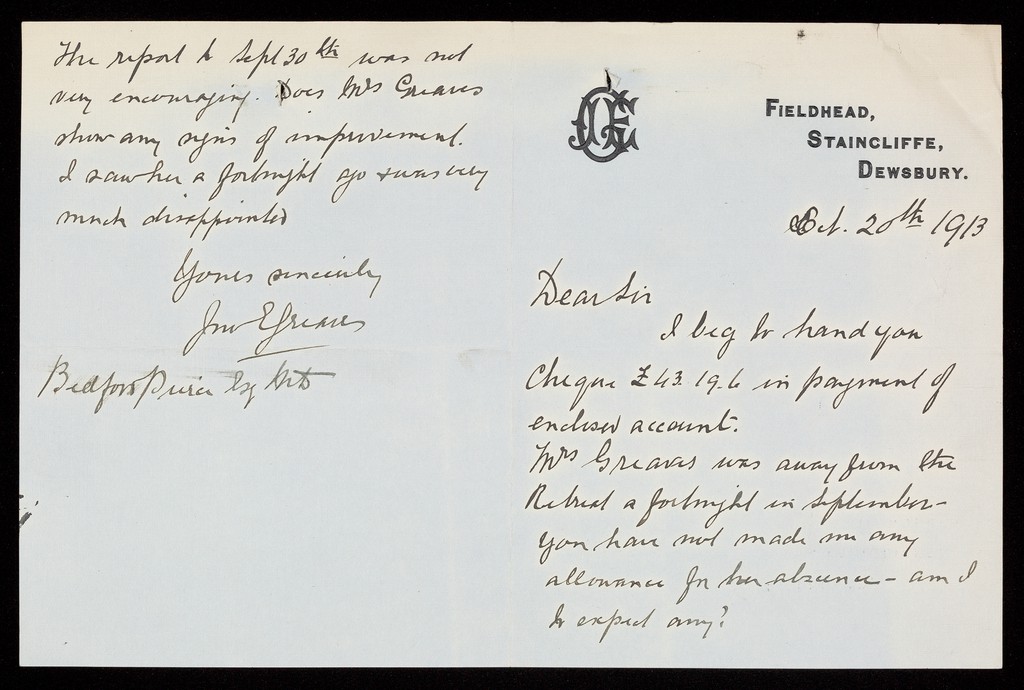 Fieldhead,
Staincliffe,
Dewsbury.
Oct. 20th 1913
Dear Sir
I beg to hand you
Cheque £43.19.6 in payment of
enclosed account.
Mrs Greaves was away from the
Retreat a fortnight in September -
you have not made me any
allowance for her absence - am I
to expect any?
The report to Sept 30th was not
very encouraging. Does Mrs Greaves
show any signs of improvement.
I saw her a fortnight ago & was very
much disappointed
Yours sincerely
Jno E Greaves
Bedford Pierce Esq